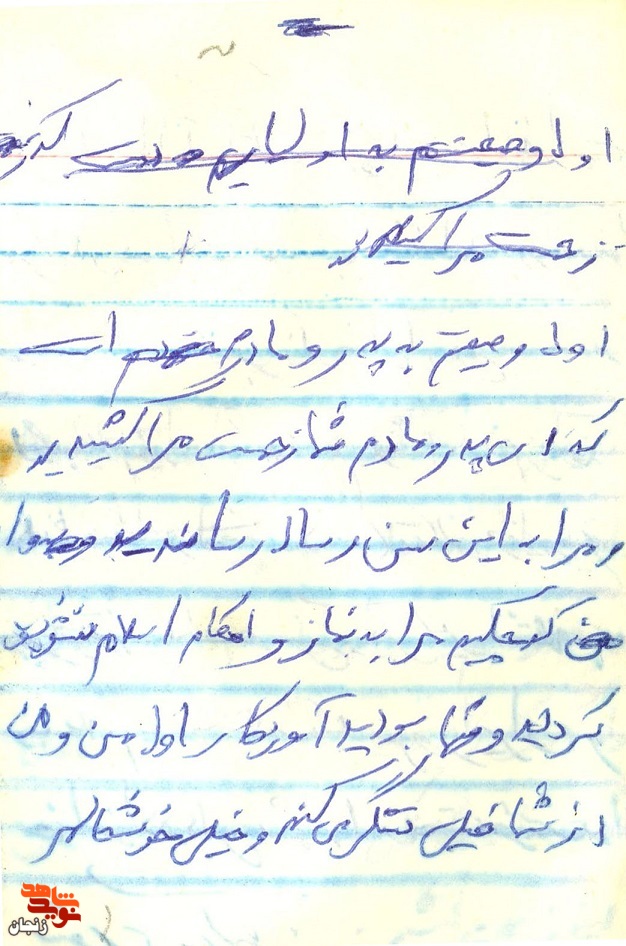 اول وصیتم به اولیایم که
زحمت مرا کشیدند
اول وصیتم به پدر و مادرم است
که ای پدر و مادرم شما زحمت مرا کشیدید
و مرا به این سن و سال رساندید و
من کوچکیم مرا به نماز و احکام اسلام تشویق
کردید و شما بودید آموزگار اول من و من
از شما خیلی تشکر می کنم و خیلی خوشحالم
نوید شاهد
زنجان